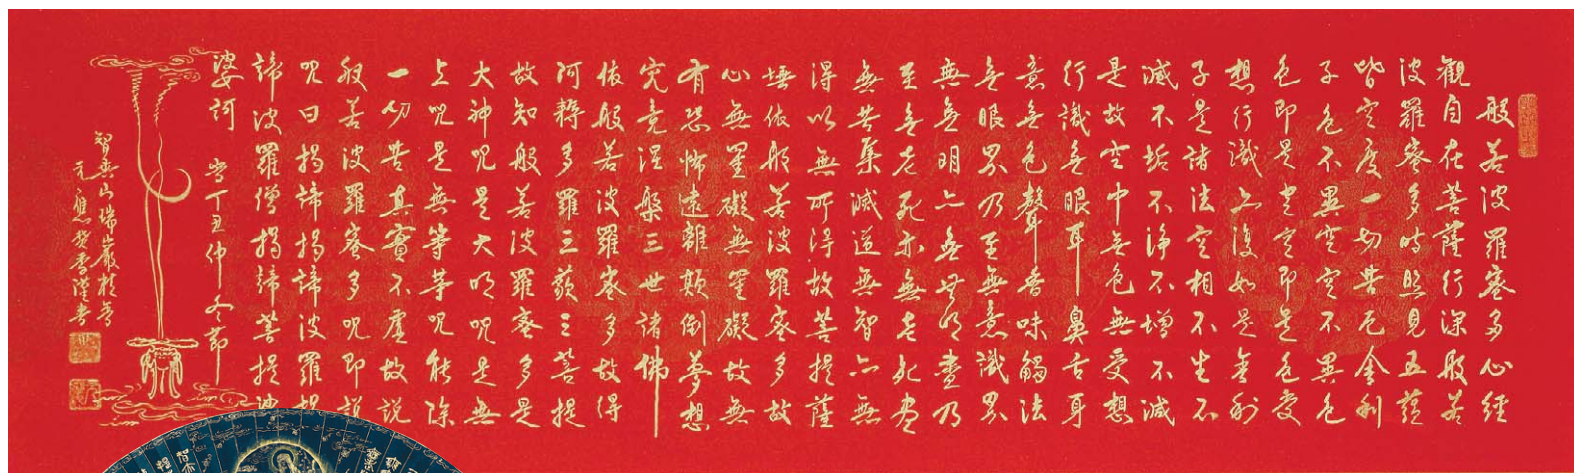 般若波羅蜜多心經
觀自在菩薩行深般若
波羅蜜多時照見五蘊
皆空度一切苦厄舍利
子色不異空空不異色
色即是空空即是色受
想行識亦復如是舍利
子是諸法空相不生不
滅不垢不淨不增不減
是故空中無色無受想
行識無眼耳鼻舌身
意無色聲香味觸法
無眼界乃至無意識界
無無明亦無無明盡乃
至無老死亦無老死盡
無苦集滅道無智亦無
得以無所得故菩提薩
埵依般若波羅蜜多故
心無罣礙無罣礙故無
有恐怖遠離顛倒夢想
究竟涅槃三世諸佛
依般若波羅蜜多故得
阿耨多羅三藐三菩提
故知般若波羅蜜多是
大神呪是大明呪是無
上呪是無等等呪能除
一切苦真實不虛故說
般若波羅蜜多呪即說
呪曰揭諦揭諦波羅揭
諦波羅僧揭諦菩提
婆訶 丁丑仲冬節
智異山瑞巖
元應 香謹書